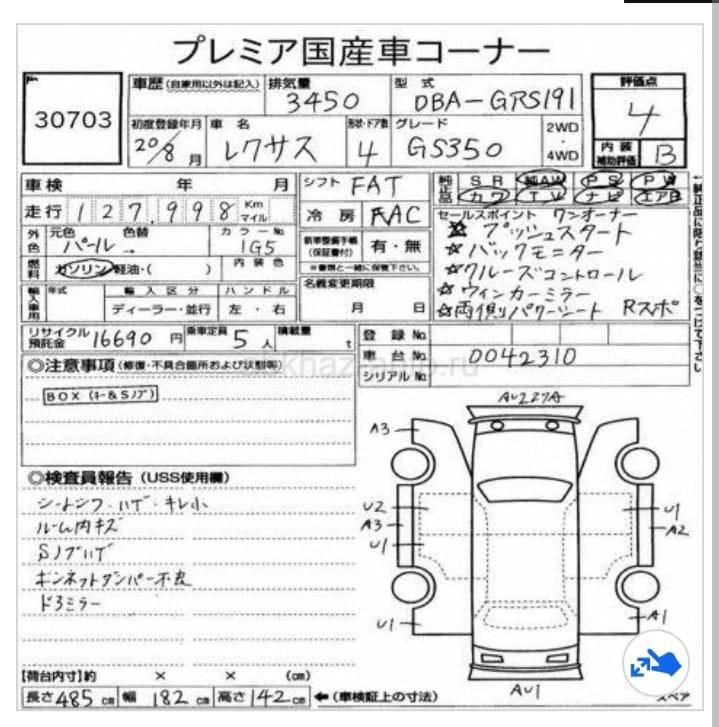 プレミア国産車コーナー
30703
車歴(自家用以外は記入)
排気量
3450
型式
DBA-GRS191
評価点
4
初度登録年月
20/8月
車名
レクサス
形状・ドア数
4
グレード
GS350
2WD
・
4WD
内装
補助評価
B
車検 年 月
シフト FAT
純正品
SR 純AW PS PW
カワ TV ナビ エアB
走行 127,998 Km マイル
冷房 AAC
セールスポイント ワンオーナー
☆プッシュスタート
☆バックモニター
☆クルーズコントロール
☆ウィンカーミラー
☆両側パワーシート Rスポ
外色
元色
パール
色替
カラーNo
1G5
新車整備手帳
(保証書付)
有・無
※書類と一緒に保管下さい。
燃料
ガソリン・軽油・( )
内装色
名義変更期限
月 日
輸入車用
年式
輸入区分
ハンドル
ディーラー・並行
左・右
リサイクル預託金 16690 円
乗車定員 5 人
積載量 t
登録No.
車台No. 0042310
シリアルNo.
◎注意事項(修復・不具合箇所および状態等)
BOX (キー&Sノブ)
◎検査員報告(USS使用欄)
シートシワ・ハゲ・キレ小
ルーム内キズ
Sノブハゲ
ボンネットダンパー不良
ドアミラー
A3
U2
A3
U1
U1
U1
A2
A1
AU1
【荷台内寸】約 × × (cm)
長さ 485 cm 幅 182 cm 高さ 142 cm ←(車検証上の寸法)
スペア